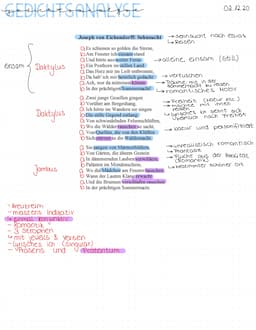 GEDICHTANALYSE
02.12.20
Joseph von Eichendorff: Sehnsucht
→ Sehnsucht nach etwas
→ Reisen
Es schienen so golden die Sterne,
Am Fenster ich einsam stand
Und hörte aus weiter Ferne
Ein Posthorn im stillen Land.
Das Herz mir im Leib entbrennte,
Da hab' ich mir heimlich gedacht:
Ach, wer da mitreisen könnte
In der prächtigen Sommernacht!
einsam
Daktylus
→ alleine, einsam
→ romantisches Motiv
Zwei junge Gesellen gingen
Vorüber am Bergeshang,
Ich hörte im Wandern sie singen
Die stille Gegend entlang:
Von schwindelnden Felsenschlüften,
Wo die Wälder rauschen so sacht,
Von Quellen, die von den Klüften
Sich stürzen in die Waldesnacht.
Daktylus
→ Natur wird personifiziert
Sie sangen von Marmorbildern,
Von Gärten, die überm Gestein
In dämmernden Lauben verwildern,
Palästen im Mondenschein,
Wo die Mädchen am Fenster lauschen,
Wann der Lauten Klang erwacht
Und die Brunnen verschlafen rauschen
In der prächtigen Sommernacht.
Jambus
→ unrealistisch romantisch
→ Fantasie
→ Flucht aus der Realität
(Romantik)
- Kreuzreim
- meistens Indikativ
- Romantik
- 3 Strophen
- mit jeweils 8 Versen
- lyrisches Ich (Singular)
- Präsens und Präteritum